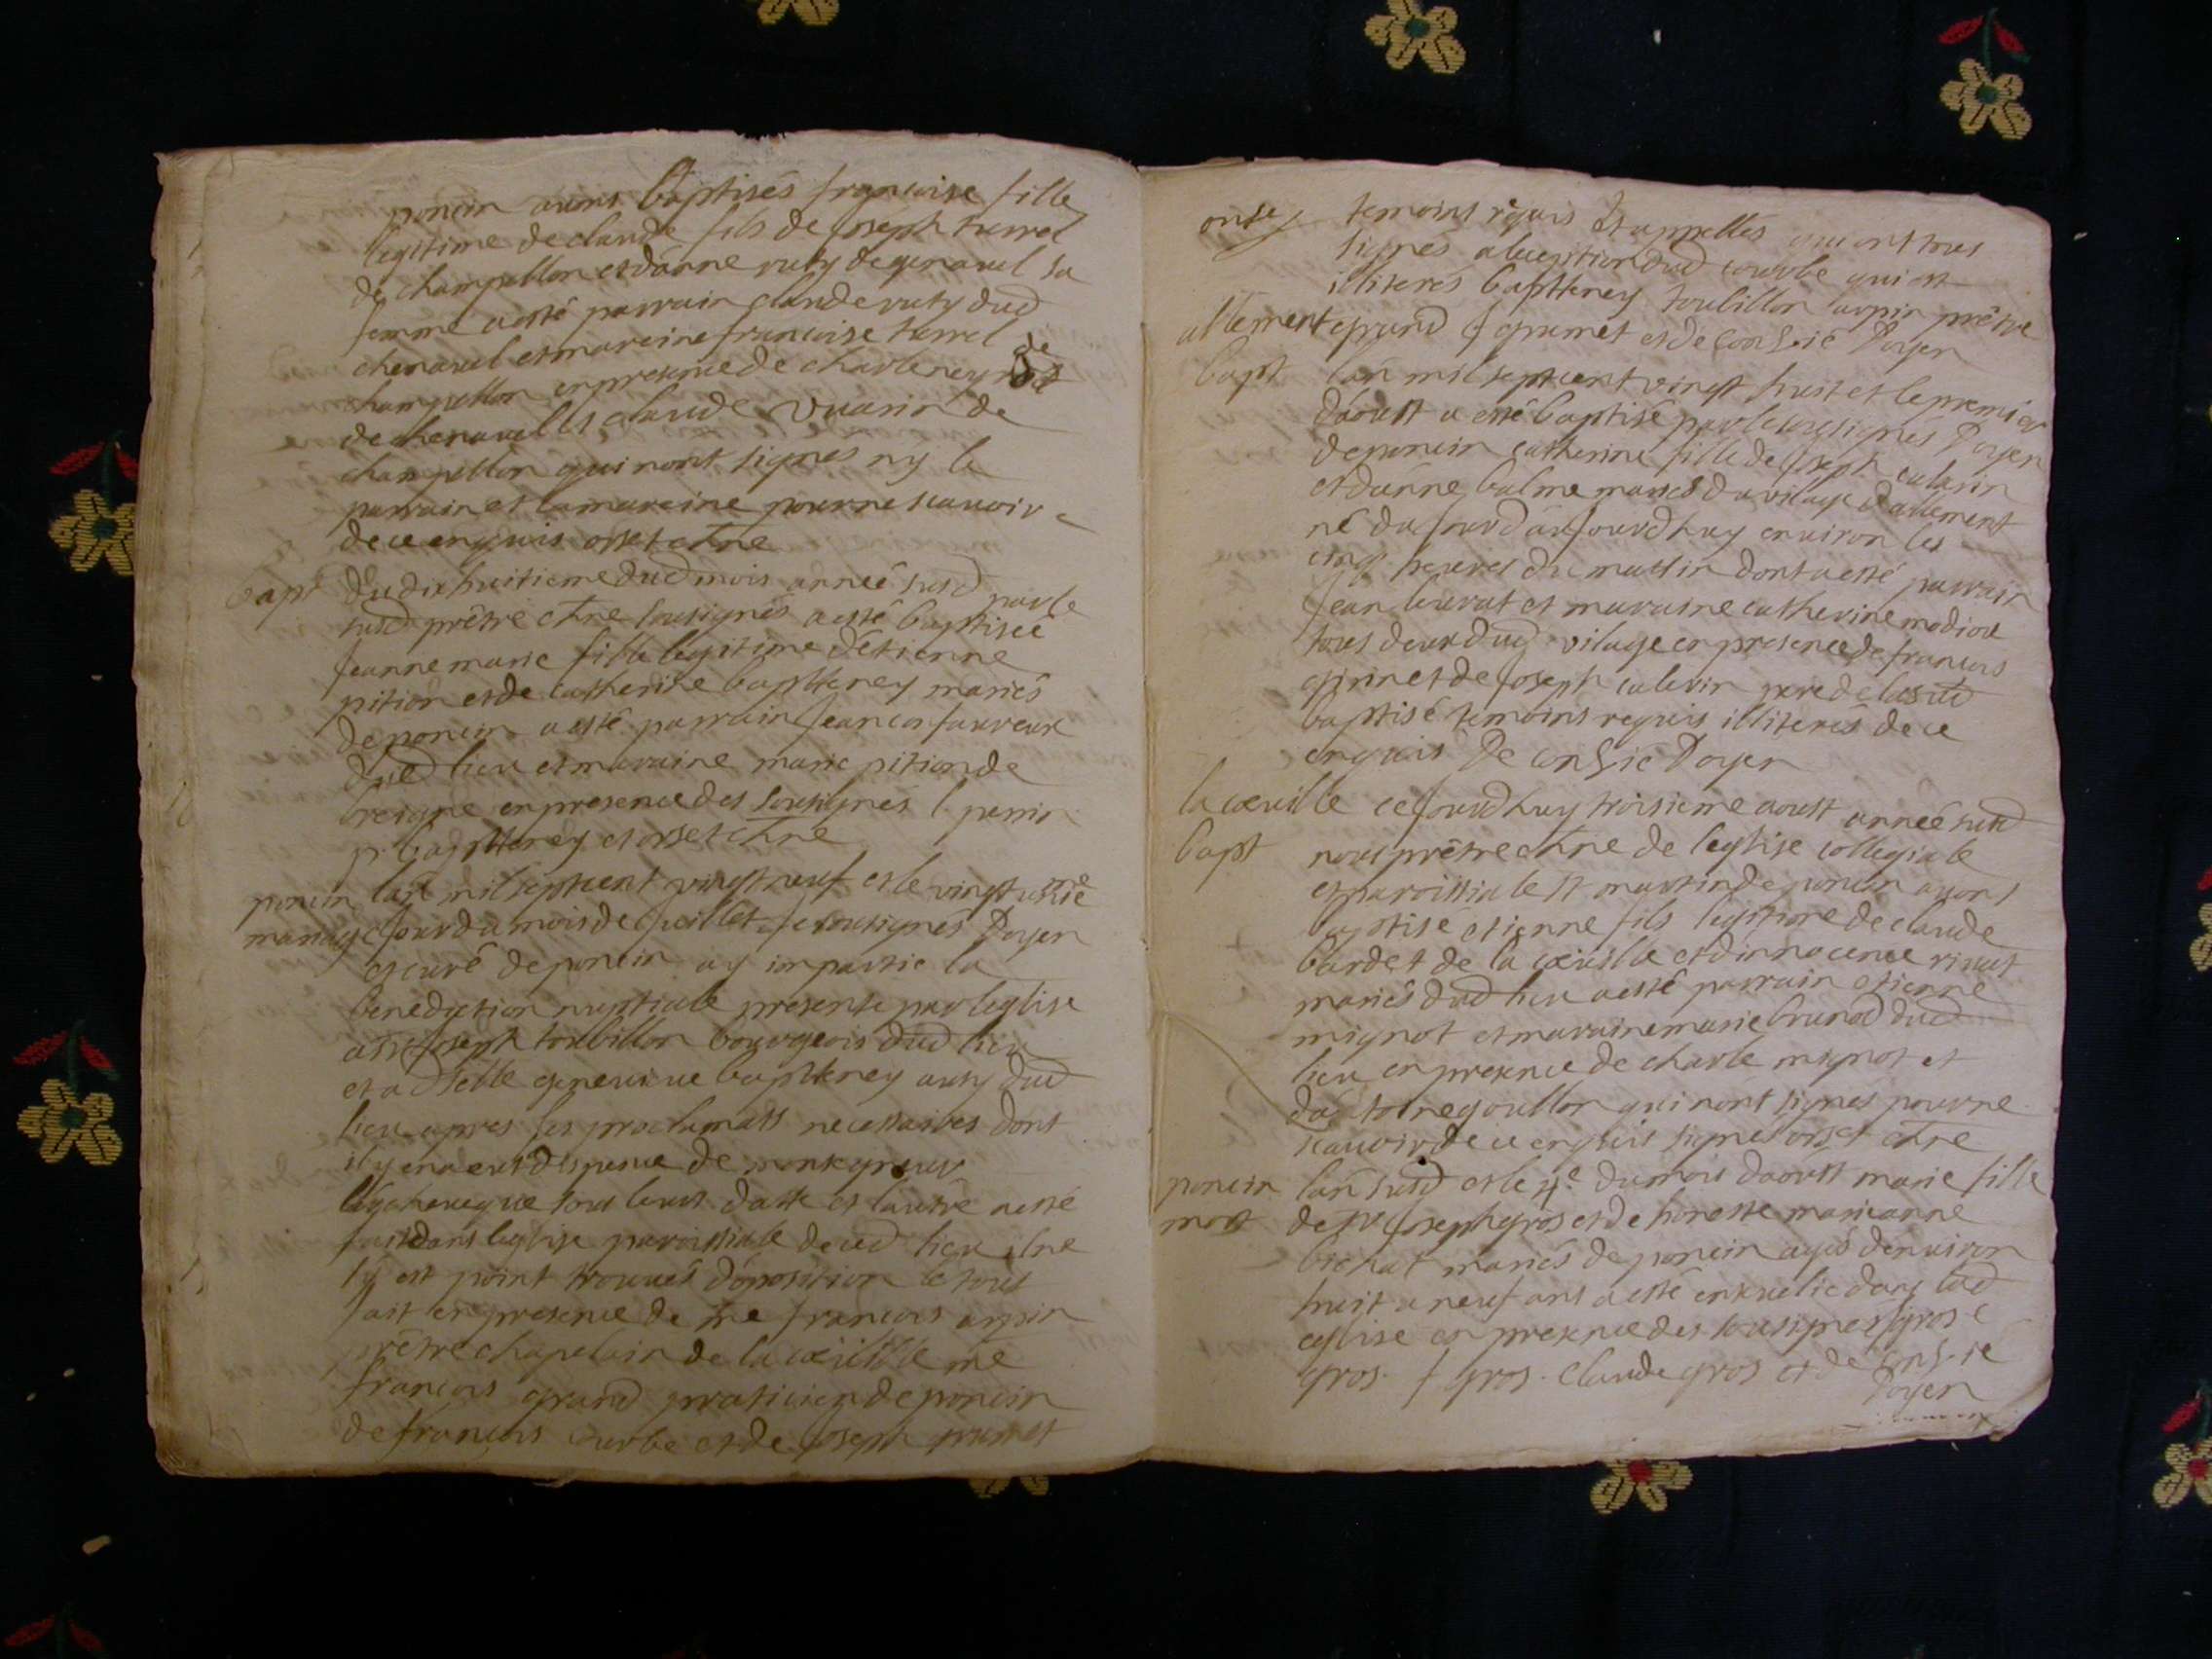 poncin avons baptisés francoise fille
legitime de claude fils de Joseph terrel
de champellon et danne ruty de genavel sa
femme a esté parrain claude ruty dud
chenavel et mareine francoise terrel de
champellon en presence de charle
de chenavel claude vuarin de
champellon qui nont signés ny le
parrain et la mareine pour ne scavoir
de ce enquis orset chne
bapt du dix huitieme dud mois année susd par le
susd prêtre chne sousignés a esté baptisée
Jeanne marie fille legitime détienne
pition et de catherine baptterey mariés
de poncin a esté parrain Jean favreux
dud lieu et maraine marie pition de
breigne en presence des sousignés l perrin
p. baptterey et orset chne
poncin lan mil septcent vingt neuf et le vingt
mariage Jour du mois de Juillet Je sousignés Doyen
et curé de poncin ay impartie la
benediction nuptiale presente par leglise
a sr Joseph toubillon bourgeois dud lieu
et a dselle genevieve baptterey aussy dud
lieu apres les proclamats necessaires dont
il y en a eut dispense de monseigneur
leveque sous leurs datte et lautre a esté
fait dans leglise paroissiale de ced lieu il ne
sy est point trouvés doposition le tout
fait en presence de mre francois arpin
prêtre chapelain de la cœuille me
francois grand praticien de poncin
de francois courbe et de Joseph grumet
onse temoins requis et appellés qui ont tous
signés a lexception dud courbe qui est
illiterés baptterey toubillon arpin prêtre
grand J grumet et de conzié Doyen
allement
bapt lan mil septcent vingt huit et le premier
daoust a esté baptisé par le sousignés Doyen
de poncin catherine fille de Joseph calarin
et danne balme mariés du vilage dallement
né du Jourd aujourdhuy environ les
cinq heures du mattin dont a esté parrain
Jean et maraine catherine
tous deux dud vilage en presence de francois
girin et de Joseph calarin pere de la susd
baptisé temoins requis illiterés de ce
enquis De conzié Doyen
la cœuille ce Jourdhuy troisieme aoust année susd
bapt nous prêtre chne de leglise collegiale
et paroissiale st martin de poncin avons
baptisé etienne fils legitime de claude
bardet de la cœuille et dinnocence rivat
mariés dud lieu a esté parrain etienne
mignot et maraine marie brunod dud
lieu en presence de charle mignot et
goullon qui nont signes pour ne
scavoir de ce enquis signés orset chne
poncin lan susd et le du mois daoust marie fille
mort de sr Joseph gros et de honeste marianne
bichat mariés de poncin agés denviron
huit a neuf ans a esté ensevelie dans lad
eglise en presence des sousignes gros
gros. J gros. Claude gros et de conzié
Doyen